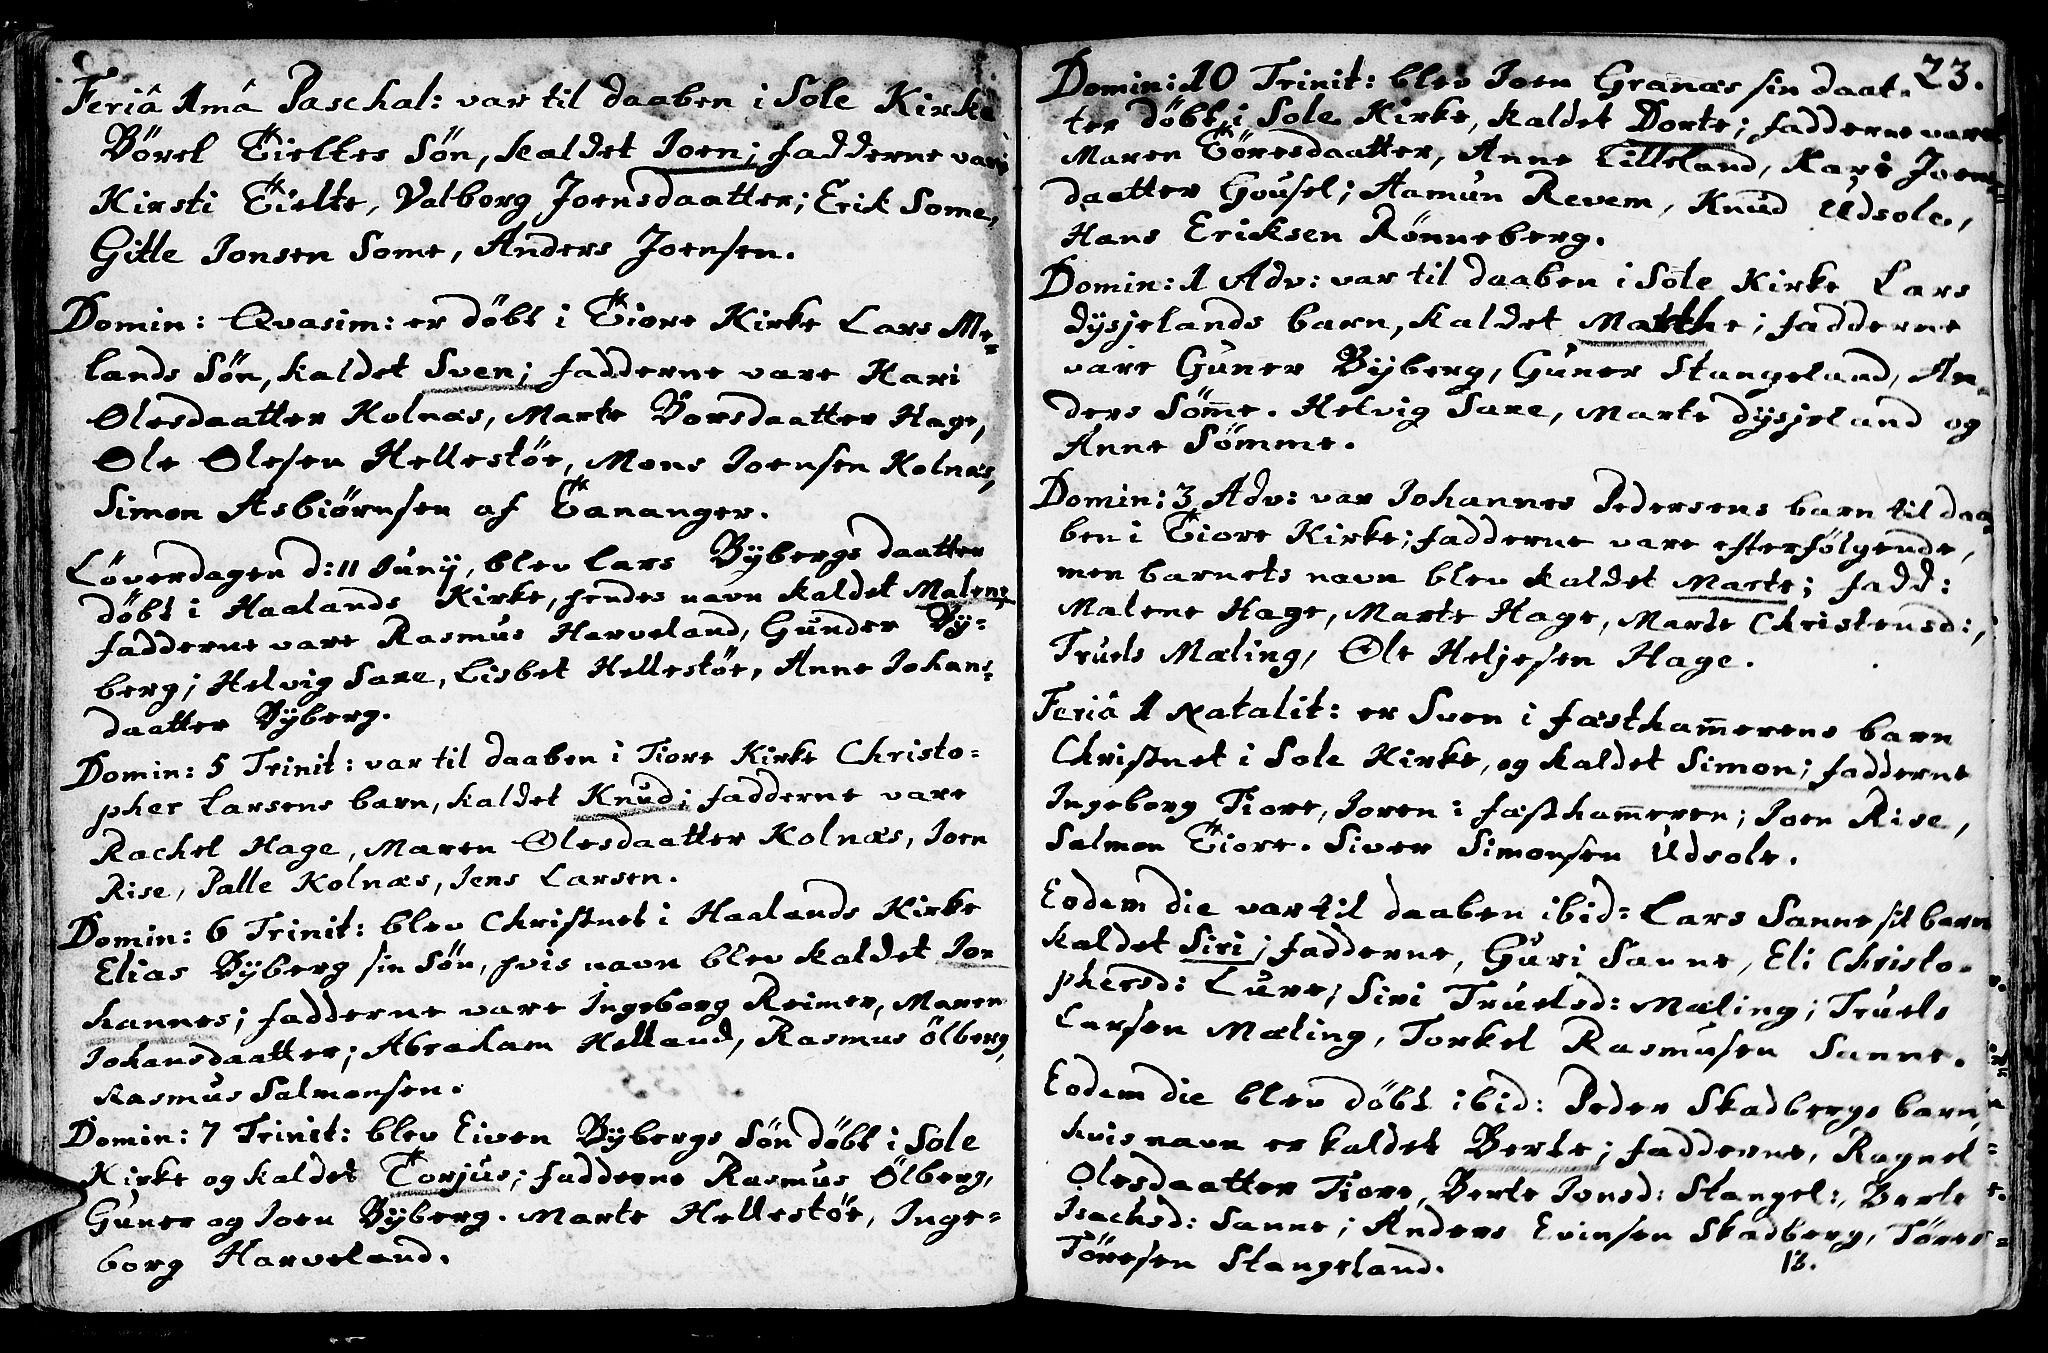 Feriâ 1mâ Paschal: var til daaben i Sole Kirke
Börel Tieltes Sön, kaldet Joen; fadderne vare
Kirsti Tielte, Valborg Joensdaatter; Erik Some,
Gitle Jonsen Some, Anders Joensen.
Domin: Qvasim: er döbt i Tiore Kirke Lars Me-
lands Sön, kaldet Sven; fadderne vare Kari
Olesdaatter Kolnæs, Marte Borsdaatter Hage,
Ole Olesen Hellestöe, Mons Joensen Kolnæs,
Simon Asbiörnsen af Tananger.
Löverdagen d: 11 Junÿ, blev Lars Bÿbergs daatter
döbt i Haalands Kirke, hendes navn kaldet Malene
fadderne vare Rasmus Harveland, Gunder Bÿ-
berg; Helvig Saxe, Lisbet Hellestöe, Anne Johans-
daatter Bÿberg.
Domin: 5 Trinit: var til daaben i Tiore Kirke Christo-
pher Larsens barn, kaldet Knud; fadderne vare
Rachel Hage, Maren Olesdaatter Kolnæs, Joen
Rise, Palle Kolnæs, Jens Larsen.
Domin: 6 Trinit: blev Christnet i Haalands Kirke
Elias Bÿberg sin Sön, hvis navn blev kaldet Jo-
hannes; fadderne vare Ingeborg Reimer, Maren
Johansdaatter; Abraham Helland, Rasmus Ölberg,
Rasmus Salmonsen.
Domin: 7 Trinit: blev Eiven Bÿbergs Sön döbt i Sole
Kirke og kaldet Torjus; fadderne Rasmus Ölberg,
Guner og Joen Bÿberg. Marte Hellestöe, Inge-
borg Harveland.
23.
Domin: 10 Trinit: blev Joen Granæs sin daat-
ter döbt i Sole Kirke, kaldet Dorte; fadderne vare
Maren Töresdaatter, Anne Lilleland, Kari Joens-
daatter Gousel; Aamun Revem, Knud Udsole,
Hans Ericksen Rönneberg.
Domin: 1 Adv: var til daaben i Sole Kirke Lars
Dÿsjelands barn, kaldet Marthe; fadderne
vare Guner Bÿberg, Guner Stangeland, An-
ders Söm̅e. Helvig Saxe, Marte Dÿsjeland og
Anne Sömme.
Domin: 3 Adv: var Johannes Pedersens barn til daa-
ben i Tiore Kirke; fadderne vare efterfölgende,
men barnets navn blev kaldet Marte; fadd:
Malene Hage, Marte Hage, Marte Christensd:,
Truels Mæling, Ole Heljesen Hage.
Feriâ 1 Natalit: er Sven i fæstham̅erens barn
Christnet i Sole Kirke, og kaldet Simon; fadderne
Ingeborg Tiore, Joren i fæstham̅eren; Joen Rise,
Salmon Tiore. Siver Simonsen Udsole.
Eodem die var til daaben ibid: Lars Sanne sit barn
kaldet Siri; fadderne, Guri Sanne, Eli Christo-
phersd: Lure; Siri Truelsd: Mæling; Truels
Larsen Mæling, Torkel Rasmusen Sanne.
Eodem die blev döbt ibid: Peder Skadbergs barn,
hvis navn er kaldet Berte; fadderne, Ragnel
Olesdaatter Tiore, Berte Jonsd: Stangel:, Berte
Isachsd: Sanne; Anders Evinsen Skadberg, Töres-
Töresen Stangeland.
13.